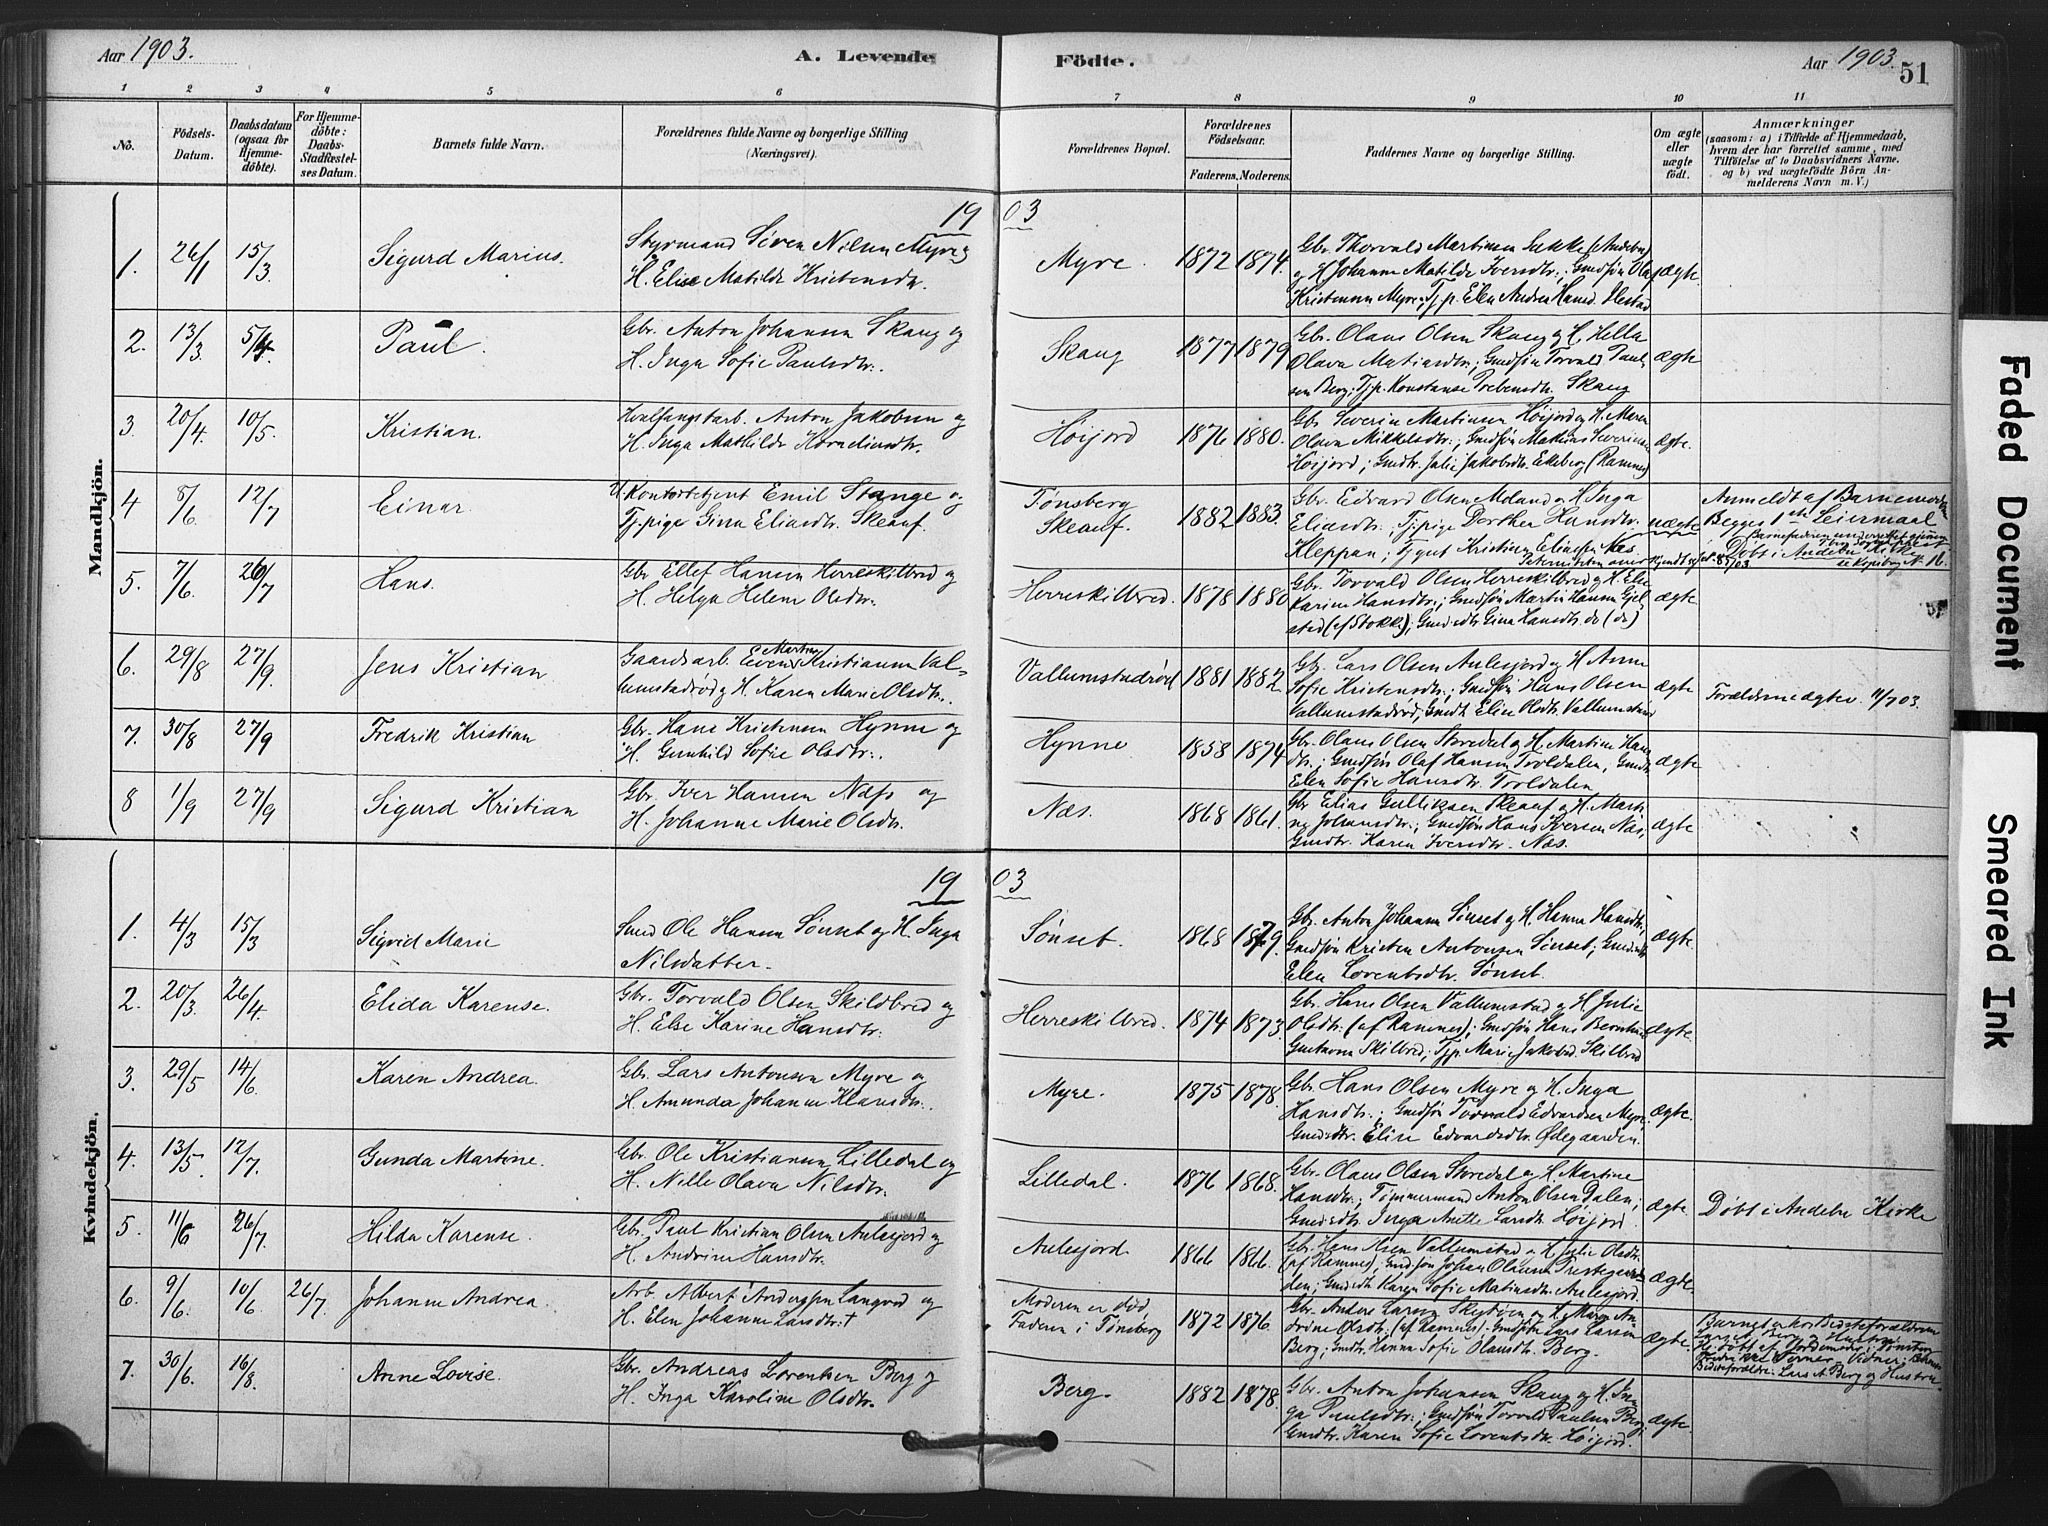 Aar 1903.
A. Levende Födte.
Aar 1903.
51
1 2 3 4 5 6 7 8 9 10 11
No.
Födsels-Datum.
Daabsdatum (ogsaa for Hjemme-döbte).
For Hjemme-döbte: Daabs-Stadfæstel-ses Datum.
Barnets fulde Navn.
Forældrenes fulde Navne og borgerlige Stilling (Næringsvei).
Forældrenes Bopæl.
Forældrenes Födselsaar.
Faderens. Moderens.
Faddernes Navne og borgerlige Stilling.
Om ægte eller uægte födt.
Anmærkninger
(saasom: a) i Tilfælde af Hjemmedaab, hvem der har forrettet samme, med Tilföielse af to Daabsvidners Navne. og b) ved uægtefödte Börn Anmelderens Navn m. V.)
Mandkjön.
1903
1. 26/1 15/3 Sigurd Marius.
Styrmand Søren Nilsen Myre og
H. Elise Matilde Kristensdtr.
Myre. 1872 1874.
Gbr. Thorvald Martinsen (Andebu)
og H. Johanne Matilde Iversdtr.; Gmdsøn Olaf
Kristensen Myre; Tjp. Elen Andrea
ægte
2. 13/3 5/4 Paul.
Gbr. Anton Johansen Skaug og
H. Inga Sofie Paulsdtr.
Skaug 1877 1879
Gbr. Olaus Olsen Skaug og H. Hella
Olava Matiasdtr.; Gmdsøn Torvald Paul-
sen Berg; Tjp. Konstanse Prebensdtr. Skaug
ægte
3. 20/4 10/5. Kristian.
Hvalfangstarb. Anton Jakobsen og
H. Inga Mathilde Korneliusdtr.
Høijord 1876 1880.
Gbr. Severin Martinsen Høijord og H. Maren
Olava Mikkelsdtr.; Gmdsøn Mathias Severinsen
Høijord; Gmdtr. Julie Jakobsdtr. Ekeberg (Ramnes)
ægte.
4 8/6 12/7 Einar.
U. Kontorbetjent Emil Stange og
Tj.pige Gina Eliasdtr. Skeauf.
Tønsberg
Skeauf. 1882 1883.
Gbr. Edvard Olsen Møland og H. Inga
Eliasdtr.; Tj.pige Dorthea Hansdtr.
Kleppan; Tjgut Kristian Eliassen Næs.
uægte
Anmeldt af Barnemoderen
Begges 1ste Leiermaal
Døbt i Andebu Kirke
5. 7/6 26/7 Hans.
Gbr. Ellef Hansen Herreskilbred og
H. Helga Helene Olsdtr.
Herreskilbred. 1878 1880
Gbr. Torvald Olsen Herreskilbred og H. Else
Karine Hansdtr.; Gmdsøn Martin Hansen Gjel-
stad (af Stokke); Gmdsdtr. Gina Hansdtr. do (do)
ægte
6. 29/8 27/9. Jens Kristian
Gaardsarb. Even Martin Kristiansen Val-
lumstadrød og H. Karen Marie Olsdtr.
Vallumstadrød 1881 1882
Gbr. Lars Olsen Aulesjord og H. Anne
Sofie Kristensdtr.; Gmdsøn Hans Olsen
Vallumstadrød; Gmdt. Elise Olsdtr. Vallumstad
ægte
Forældrene ægtev. 11/7 03.
7. 30/8 27/9 Fredrik Kristian
Gbr. Hans Kristensen Hynne og
H. Gunhild Sofie Olsdtr.
Hynne 1858 1874
Gbr. Olaus Olsen Storedal og H. Martine Han-
dtr.; Gmdsøn Olaf Hansen Troldalen; Gmdtr.
Elen Sofie Hansdtr. Troldalen
ægte
8 1/9 27/9 Sigurd Kristian
Gbr. Iver Hansen Næss og
H. Johanne Marie Olsdtr.
Næs. 1868 1861.
Gbr. Elias Gulliksen Skeauf og H. Marti-
ne Johansdtr.; Gmdsøn Hans Iversen Næs;
Gmdtr. Karen Iversdtr. Næs.
ægte
Kvindekjön.
1903
1. 4/3 15/3 Sigvid Marie
Smed Ole Hansen Sønset og H. Inga
Nilsdatter.
Sønset. 1868 1879.
Gbr. Anton Johansen Sønset og H. Hanna Hansdtr.;
Gmdsøn Kristen Antonsen Sønset; Gmdsdtr.
Elen Lorentsdtr. Sønset.
ægte.
2. 20/3 26/4 Elida Karense.
Gbr. Torvald Olsen Skildbred og
H. Else Karine Hansdtr.
Herreskilbred. 1874 1873.
Gbr. Hans Olsen Vallumstad og H. Julie
Olsdtr. (af Ramnes); Gmdsøn Hans Berntin
Gustavsen Skilbred; Tjp. Marie Jakobsd. Skilbred
ægte
3. 29/5 14/6 Karen Andrea.
Gbr. Lars Antonsen Myre og
H. Amunda Johanne Klausdtr.
Myre. 1875 1878.
Gbr. Hans Olsen Myre og H. Inga
Hansdtr.; Gmdsøn Torvald Edvardsen Myre;
Gmdsdtr. Elise Edvardsdtr. Ødegaarden.
ægte.
4. 13/5. 12/7. Gunda Martine.
Gbr. Ole Kristiansen Lilledal og
H. Nille Olava Nilsdtr.
Lilledal. 1876 1868.
Gbr. Olaus Olsen Storedal og H. Martine
Hansdtr.; Tømmermand Anton Olsen Dalen;
Gmdsdtr. Inga Anette Larsdtr. Høijord.
ægte.
Døbt i Andebu Kirke
5. 11/6 26/7 Hilda Karense.
Gbr. Paul Kristian Olsen Aulesjord og
H. Andrine Hansdtr.
Aulesjord. 1866 1866.
Gbr. Hans Olsen Vallumstad og H. Julie Olsdtr.
(af Ramnes); Gmdsøn Johan Olausen Prestegaar-
den; Gmdsdtr. Karen Sofie Matiasdtr. Aulesjord
ægte.
6. 9/6. 10/6 26/7 Johanne Andrea.
Arb. Albert Anderssen Langved og
H. Elen Johanne Larsdtr. †
Moderen er død,
Faderen i Tønsberg 1872 1876.
Gbr. Anders Larsen Skjeggestad og H. Maren An-
drine Olsdtr. (af Ramnes); Gmdsøn Lars Larsen
Berg; Gmdtr. Hanna Sofie Olausdtr. Berg.
ægte.
Barnet er hos Bedsteforældrene
Lars A. Berg og Hustru;
Hj.døbt af Jordemoder i Tønsberg
Bedsteforældre: Lars A. Berg og Hustru.
7. 30/6. 16/8. Anne Lovise.
Gbr. Andreas Lorentsen Berg og
H. Inga Karoline Olsdtr.
Berg. 1882 1878.
Gbr. Anton Johansen Skaug og H. In-
ga Paulsdtr.; Gmdsøn Torvald Paulsen Berg;
Gmdtr. Karen Sofie Lorentsdtr. Høijord.
ægte.
Faded Document
Smeared Ink